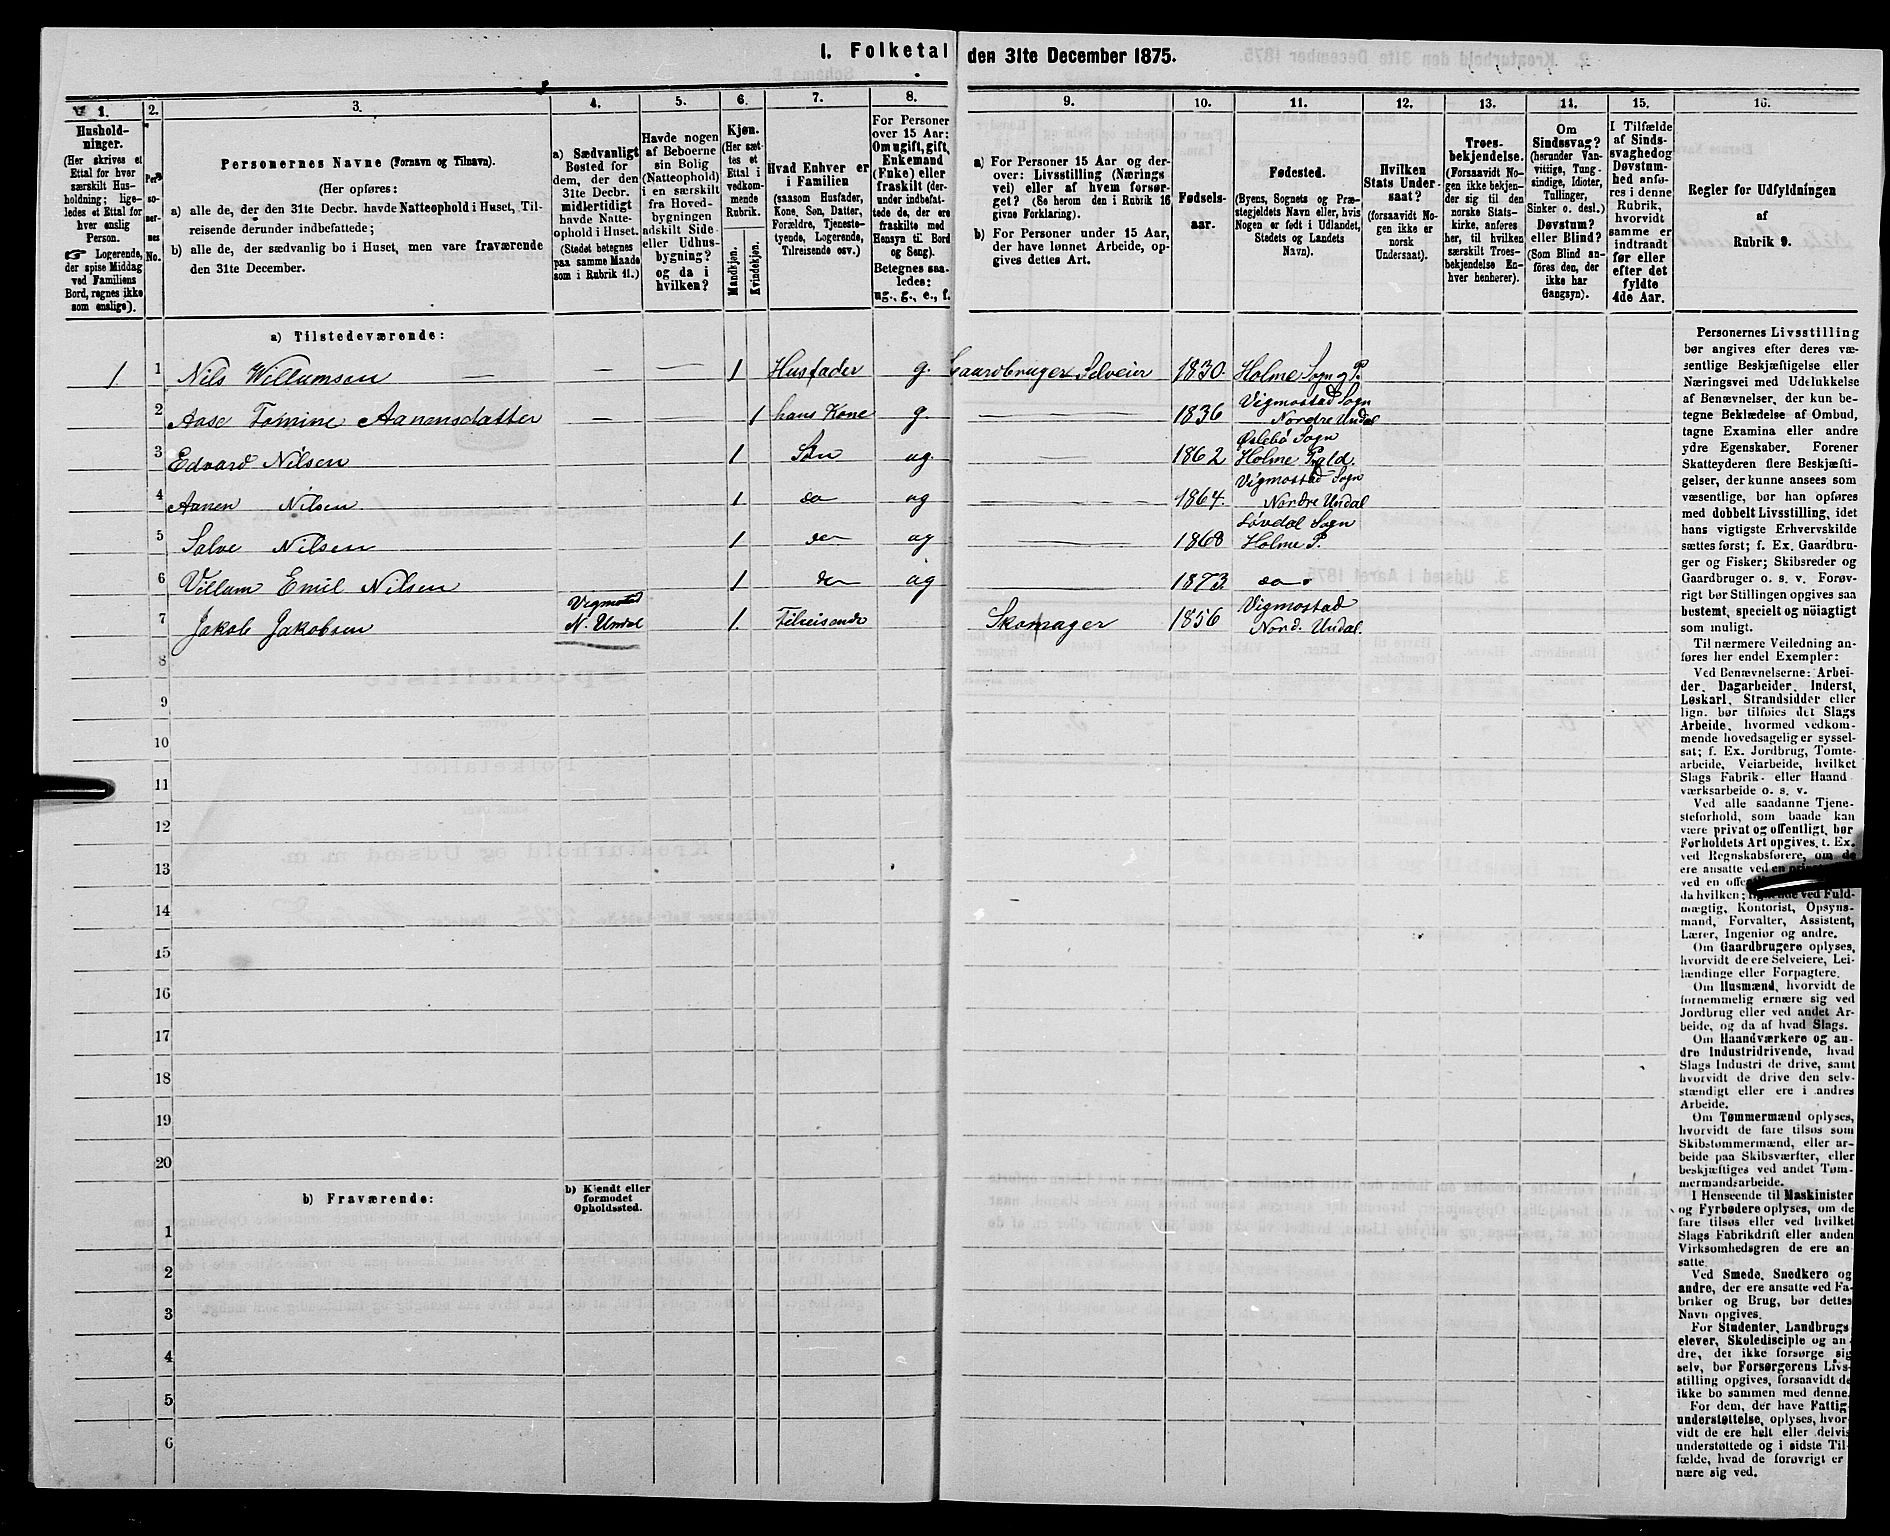 I. Folketal den 31te December 1875.
1. 2. 3. 4. 5. 6. 7. 8. 9. 10. 11. 12. 13. 14. 15. 16.
Hushold-
ninger.
(Her skrives et
Ettal for hver
særskilt Hus-
holdning; lige-
ledes et Ettal for
hver enslig
Person.
☞ Logerende,
der spise Middag
ved Familiens
Bord, regnes ikke
som enslige).
Per-
so-
ner-
nes
No.
Personernes Navne (Fornavn og Tilnavn).
(Her opføres:
a) alle de, der den 31te Decbr. havde Natteophold i Huset, Til-
reisende derunder indbefattede;
b) alle de, der sædvanlig bo i Huset, men vare fraværende
den 31te December.
a) Sædvanligt
Bosted for
dem, der den
31te Decbr.
midlertidigt
havde Natte-
ophold i Huset.
(Stedet betegnes
paa samme Maade
som i Rubrik 11.)
Havde nogen
af Beboerne
sin Bolig
(Natteophold)
i en særskilt
fra Hoved-
bygningen
adskilt Side-
eller Udhus-
bygning?
og da i
hvilken?
Kjøn.
(Her sæt-
tes et
Ettal i
vedkom-
mende
Rubrik.
Mandkjøn.
Kvindekjøn.
Hvad Enhver er
i Familien
(saasom Husfader,
Kone, Søn, Datter,
Forældre, Tjeneste-
tyende, Logerende,
Tilreisende osv.)
For Personer
over 15 Aar:
Om ugift, gift,
Enkemand
(Enke) eller
fraskilt (der-
under indbefat-
tede de, der ere
fraskilte med
Hensyn til Bord
og Seng).
Betegnes saa-
ledes:
ug., g., e., f.
a) For Personer 15 Aar og der-
over: Livsstilling (Nærings-
vei) eller af hvem forsør-
get? (Se herom den i Rubrik 16
givne Forklaring).
b) For Personer under 15 Aar,
der have lønnet Arbeide, op-
gives dettes Art.
Fødsels-
aar.
Fødested.
(Byens, Sognets og Præ-
stegjeldets Navn eller, hvis
Nogen er født i Udlandet,
Stedets og Landets
Navn).
Hvilken
Stats Under-
saat?
(forsaavidt No-
gen ikke er
norsk
Undersaat).
Troes-
bekjendelse.
(Forsaavidt No-
gen ikke bekjen-
der sig til den
norske Stats-
kirke, anføres
her, til hvilken
særskilt Troes-
bekjendelse En-
hver henhører).
Om
Sindssvag?
(herunder Van-
vittige, Tung-
sindige, Idioter,
Tullinger,
Sinker o. desl.)
Døvstum?
eller Blind?
(Som Blind an-
føres den, der
ikke har
Gangsyn).
I Tilfælde
af Sinds-
svaghed og
Døvstum-
hed anfø-
res i denne
Rubrik,
hvorvidt
samme er
indtraadt
før eller
efter det
fyldte
4de Aar.
Regler for Udfyldningen
af
Rubrik 9.
a) Tilstedeværende:
1 1 Nils Willumsen — — — 1 Husfader g. Gaardbruger Selveier 1830. Holme Sogn og P.
2 Aase Tomine Aanensdatter — — 1 hans Kone g — 1836 Vigmostad Sogn Nordre Undal
3 Edvard Nilsen 1 Søn ug. — 1862 Øslebø Sogn Holme Prgld.
4 Aanen Nilsen 1 do ug — 1864. Vigmostad Sogn Nordre Undal
5 Salve Nilsen 1 do ug — 1868 Løvdal Sogn Holme P.
6 Villum Emil Nilsen 1 do ug — 1873. do
7 Jakob Jakobsen Vigmostad N. Undal 1. Tilreisende Skomager 1856 Vigmostad Nord. Undal.
8
9
10
11
12
13
14
15
16
17
18
19
20
b) Fraværende:
b) Kjendt eller
formodet
Opholdssted.
1
2
3
4
5
6
Personernes Livsstilling
bør angives efter deres væ-
sentlige Beskjæftigelse eller
Næringsvei med Udelukkelse
af Benævnelser, der kun be-
tegne Beklædelse af Ombud,
tagne Examina eller andre
ydre Egenskaber. Forener
Skatteyderen flere Beskjæfti-
gelser, der kunne ansees som
væsentlige, bør han opføres
med dobbelt Livsstilling, idet
hans vigtigste Erhvervskilde
sættes først; f. Ex. Gaardbru-
ger og Fisker; Skibsreder og
Gaardbruger o. s. v. Forøv-
rigt bør Stillingen opgives saa
bestemt, specielt og nöiagtigt
som muligt.
Til nærmere Veiledning an-
føres her endel Exempler:
Ved Benævnelserne: Arbei-
der, Dagarbeider, Inderst,
Løskarl, Strandsidder eller
lign. bør tilføies det Slags
Arbeide, hvormed vedkom-
mende hovedsagelig er syssel-
sat; f. Ex. Jordbrug, Tomte-
arbeide, Veiarbeide, hvilket
Slags Fabrik- eller Haand-
værksarbeide o. s. v.
Ved alle saadanne Tjene-
steforhold, som baade kan
være privat og offentligt, bør
Forholdets Art opgives, t. Ex.
ved Regnskabsførere, om de
ere ansatte ved en
ved en
da hvilken; lignende ved Fuld-
mægtig, Kontorist, Opsyns-
mand, Forvalter, Assistent,
Lærer, Ingeniør og andre.
Om Gaardbrugere oplyses,
hvorvidt de ere Selveiere, Lei-
lændinge eller Forpagtere.
Om Husmænd, hvorvidt de
fornemmelig ernære sig ved
Jordbrug eller ved andet Ar-
beide, og da af hvad Slags.
Om Haandværkere og an-
dre Industridrivende, hvad
Slags Industri de drive, samt
hvorvidt de drive den selv-
stændigt eller ere i andres
Arbeide.
Om Tømmermænd oplyses,
hvorvidt de fare tilsøs som
Skibstømmermænd, eller ar-
beide paa Skibsværfter, eller
beskjæftiges ved andet Tøm-
mermandsarbeide.
I Henseende til Maskinister
og Fyrbødere oplyses, om de
fare tilsøs eller ved hvilket
Slags Fabrikdrift eller anden
Virksomhedsgren de ere an-
satte.
Ved Smede, Snedkere og
andre, der ere ansatte ved Fa-
briker og Brug, bør dettes
Navn opgives.
For Studenter, Landbrugs-
elever, Skoledisciple og an-
dre, der ikke forsørge sig
selv, bør Forsørgerens Livs-
stilling opgives, forsaavidt de
ikke bo sammen med denne.
For dem, der have Fattig-
understøttelse, oplyses, hvor-
vidt de ere helt eller delvis
understøttede og i sidste Til-
fælde, hvad de forøvrigt er-
nære sig ved.